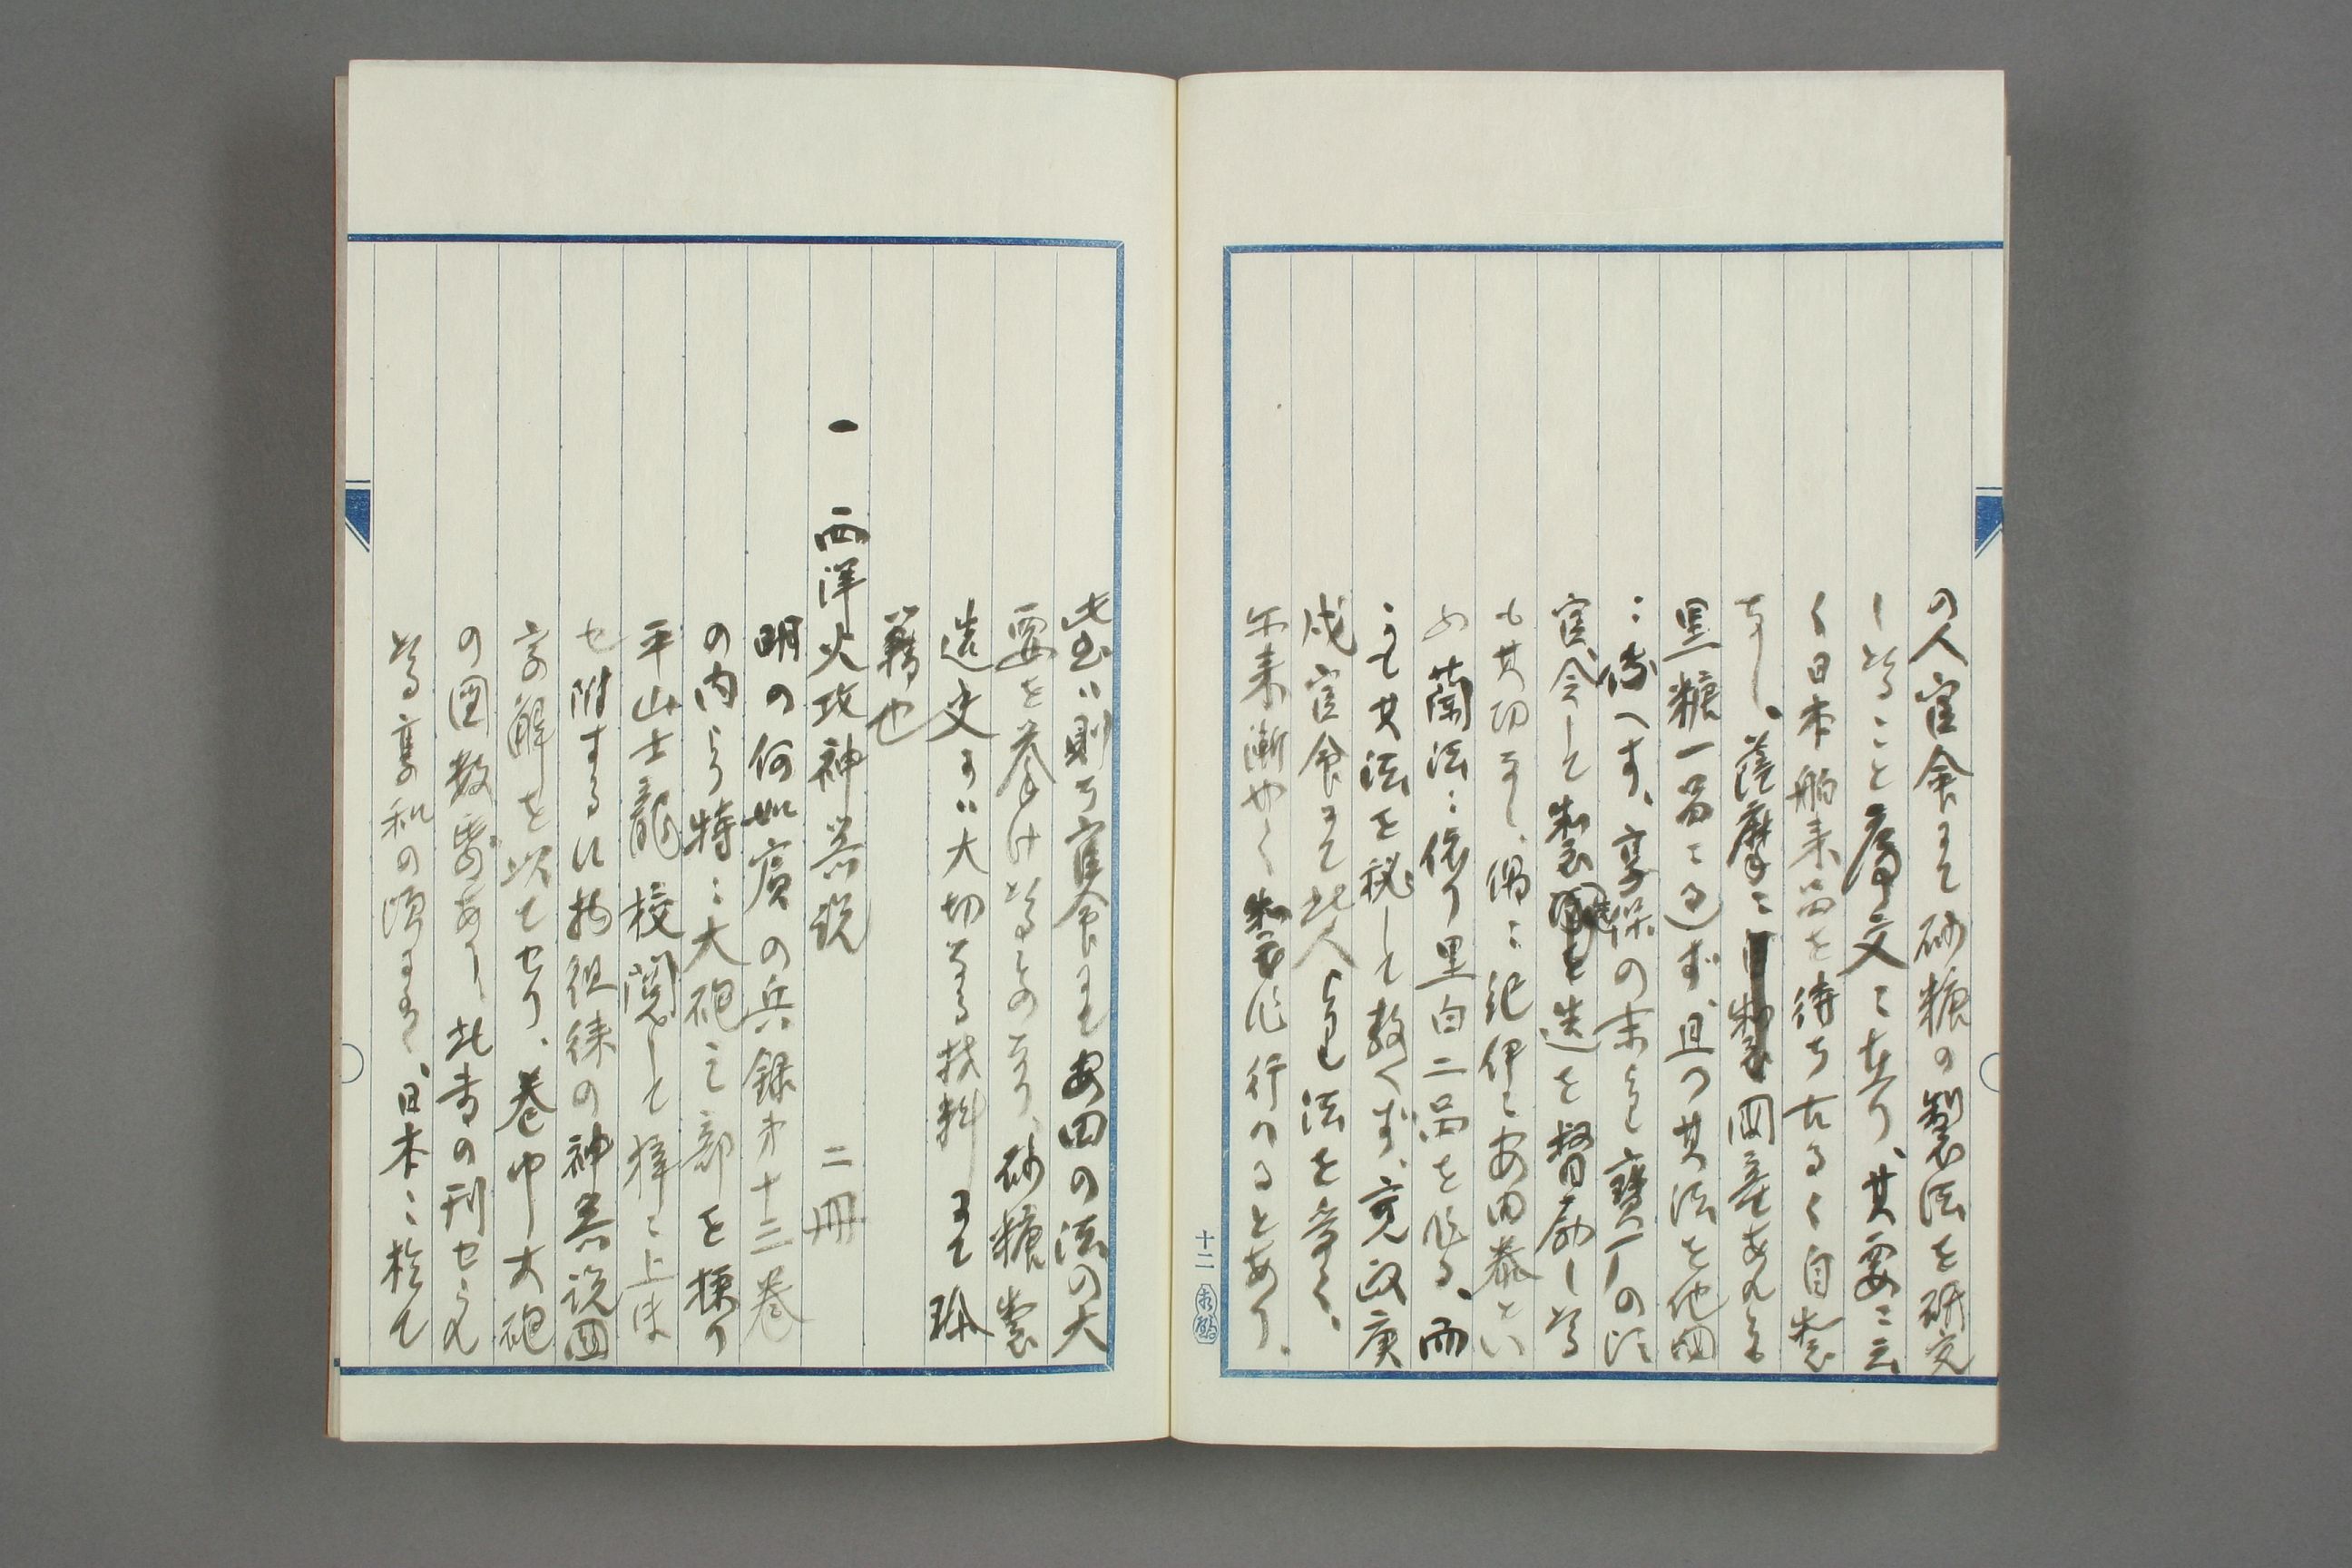 の人官命にて砂糖の製法を研究
したること序文に在り、其要に云
く日本舶来品を待ち古るく自製
なし、薩摩に国産あれども
黒糖一品に過ず、且つ其法を他国
に伝へず、享保の末より寶暦の頃
官令して製造を督励したる
も其功なし、偶に紀伊に安田恭とい
ふ蘭法に依り黒白二品を作る、而
して其法を秘して教へず、寛政庚
戌官命にて此人より法を受く、
尓来漸やく製作行はるとあり、
十二
此書は則ち官命にて安田の法の大
要を挙げたるものなり、砂糖製
造史には大切なる材料にて珍
籍也
一 西洋火攻神器説 二冊
明の何汝賓の兵録第十三巻
の内より特に大砲之部を採り
平山士龍校閲して梓に上ほ
せ附するに物徂徠の神器説国
字解を以てせり、巻中大砲
の図数多あり、此書の刊せられ
たる享和の頃までは、日本に於て